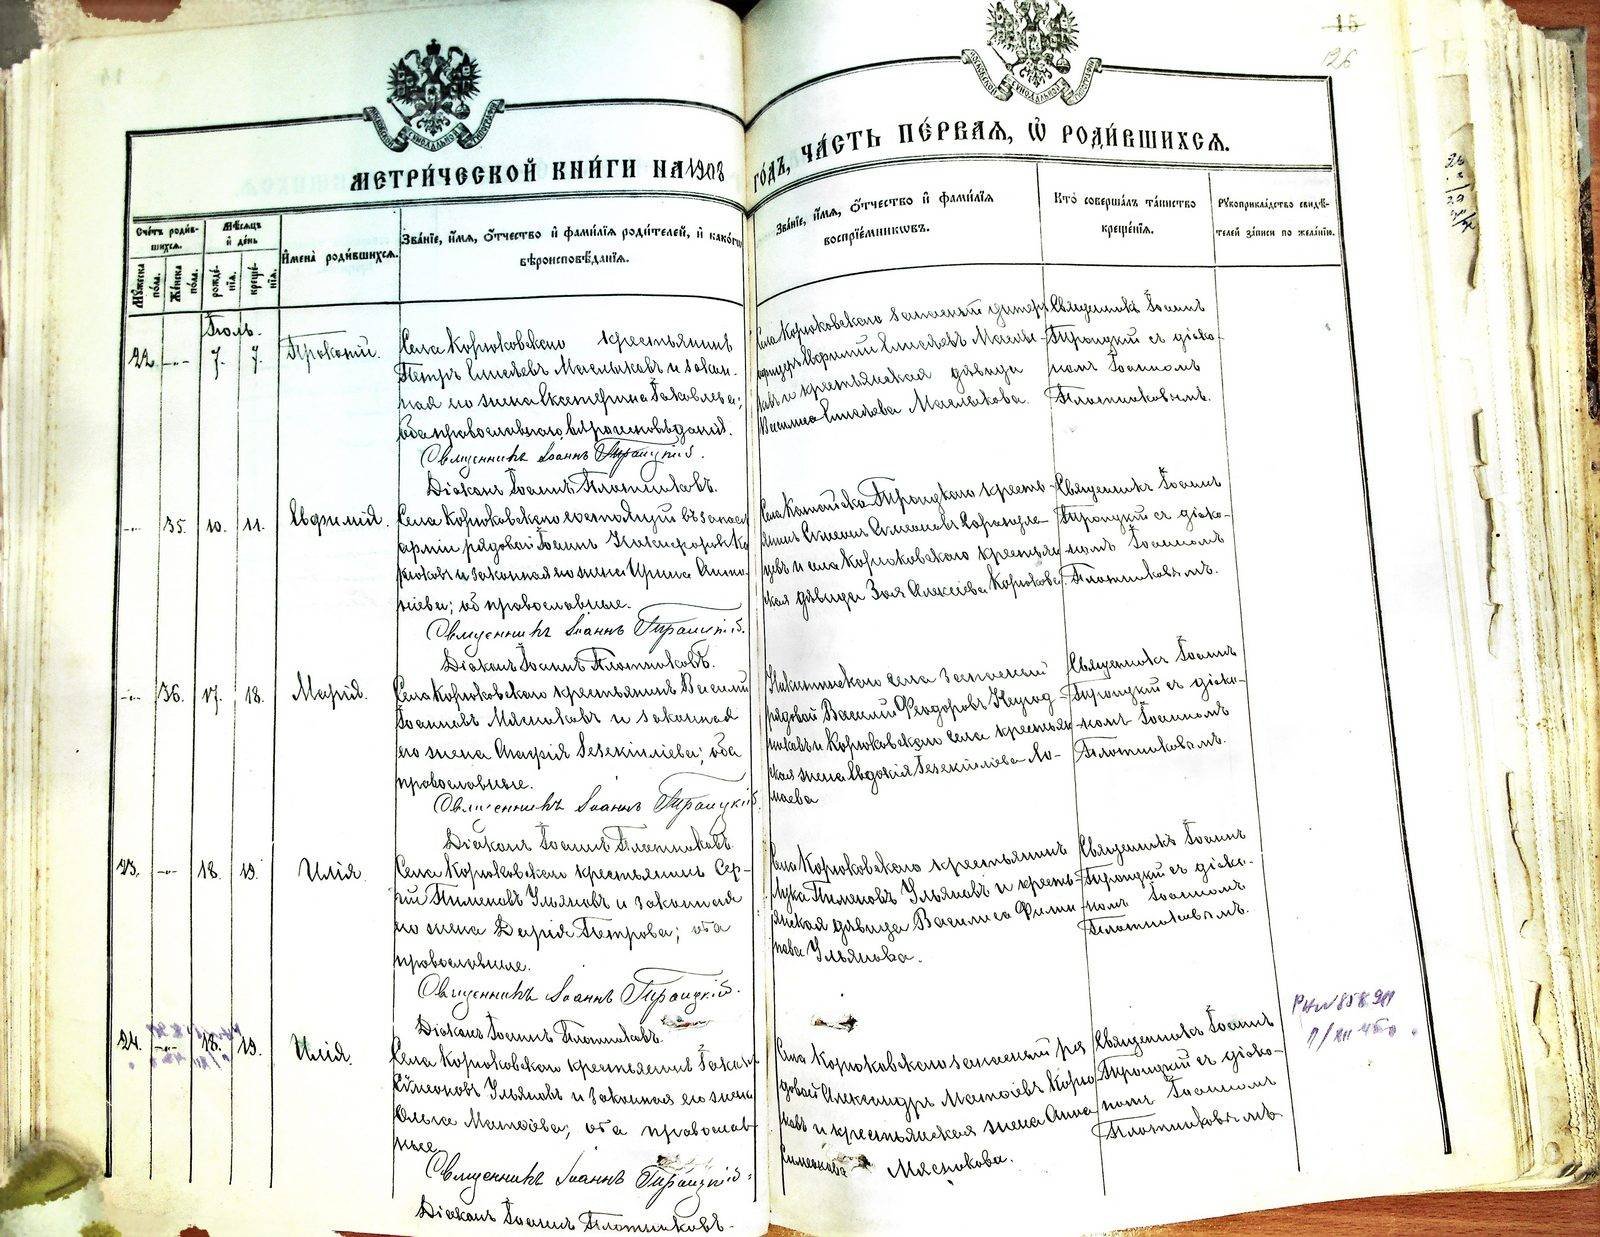 15
126
МОСКОВСКОЙ СѴНОДАЛЬНОЙ ТИПОГРАФІИ
МОСКОВСКОЙ СѴНОДАЛЬНОЙ ТИПОГРАФІИ
МЕТРИ́ЧЕСКОЙ КНИ́ГИ НА 1908
ГО́ДЪ, ЧА́СТЬ ПЕ́РВАЯ, Ѡ҆ РОДИ́ВШИХСЯ.
Сче́тъ роди́в-
шихся.
Мꙋ́жеска по́ла.
Же́нска по́ла.
Мѣ́сяцъ
и҆ де́нь
рожде́-
нїя.
креще́-
нїя.
И҆мена̀ роди́вшихся.
Зва́нїе, и҆́мя, ѻ҆́тчество и҆ фами́лїя роди́телей, и҆ како́гѡ
вѣроисповѣ́данїя.
Зва́нїе, и҆́мя, ѻ҆́тчество и҆ фами́лїя
воспрїе́мникѡвъ.
Кто̀ соверша́лъ та́инство
креще́нїя.
Рꙋкоприкла́дство свидѣ́-
телей за́писи по жела́нїю.
Іюль.
22 —„— 7. 7. Прокопій.
Села Корюковскаго крестьянинъ
Петръ Елисѣевъ Масльіковъ и закон-
ная его жена Екатерина Іаковлева;
оба православнаго вѣроисповѣданія.
Священникъ Іоаннъ Троицкій.
Діаконъ Іоаннъ Плотниковъ.
Села Корюковскаго запасный унтеръ
офицеръ Евфимій Елисѣевъ Маслы-
ковъ и крестьянская дѣвица
Василиса Елисѣева Маслыкова.
Священникъ Іоаннъ
Троицкій съ діако-
номъ Іоанномъ
Плотниковымъ.
—„— 35. 10. 11. Евфимія.
Села Корюковскаго состоящій въ запасѣ
арміи рядовой Іоаннъ Никифоровъ Ко
рюковъ и законная его жена Ирина Анто-
ніева; оба православные.
Священникъ Іоаннъ Троицкій.
Діаконъ Іоаннъ Плотниковъ.
Села Катайско Троицкаго кресть-
янинъ Симеонъ Симеоновъ
цевъ и села Корюковскаго крестьян
ская дѣвица Зоя Алексіева Корюкова.
Священникъ Іоаннъ
Троицкій съ діако-
номъ Іоанномъ
Плотниковымъ.
—„— 36. 17. 18. Марія.
Села Корюковскаго крестьянинъ Василій
Іоанновъ Мясниковъ и законная
его жена Агафія Іезекіиліева; оба
православные.
Священникъ Іоаннъ Троицкій.
Діаконъ Іоаннъ Плотниковъ
Никитинскаго села запасный
рядовой Василій Ѳеодоровъ
и Корюковскаго села крестьян
ская жена Евдокія Іезекіиліева Ло-
маева
Священникъ Іоаннъ
Троицкій съ діако-
номъ Іоанномъ
Плотниковымъ.
23. —„— 18. 19. Илія.
Села Корюковскаго крестьянинъ Сер-
гій Пименовъ Ульяновъ и законная
его жена Дарія Петрова; оба
православные.
Священникъ Іоаннъ Троицкій.
Діаконъ Іоаннъ Плотниковъ.
Села Корюковскаго крестьянинъ
Лука Пименовъ Ульяновъ и кресть-
янская дѣвица Василиса Филип
пова Ульянова.
Священникъ Іоаннъ
Троицкій съ діако-
номъ Іоанномъ
Плотниковымъ.
24. —„— 18. 19. Илія.
Села Корюковскаго крестьянинъ
Симеоновъ Ульяновъ и законная его жена
Ольга Матѳіева; оба православ-
ные
Священникъ Іоаннъ Троицкій.
Діаконъ Іоаннъ Плотниковъ.
Села Корюковскаго запасный ря
довой Александръ Матѳіевъ Корю
ковъ и крестьянская жена Анна
Симеонова Мясникова.
Священникъ Іоаннъ
Троицкій съ діако-
номъ Іоанномъ
Плотниковымъ